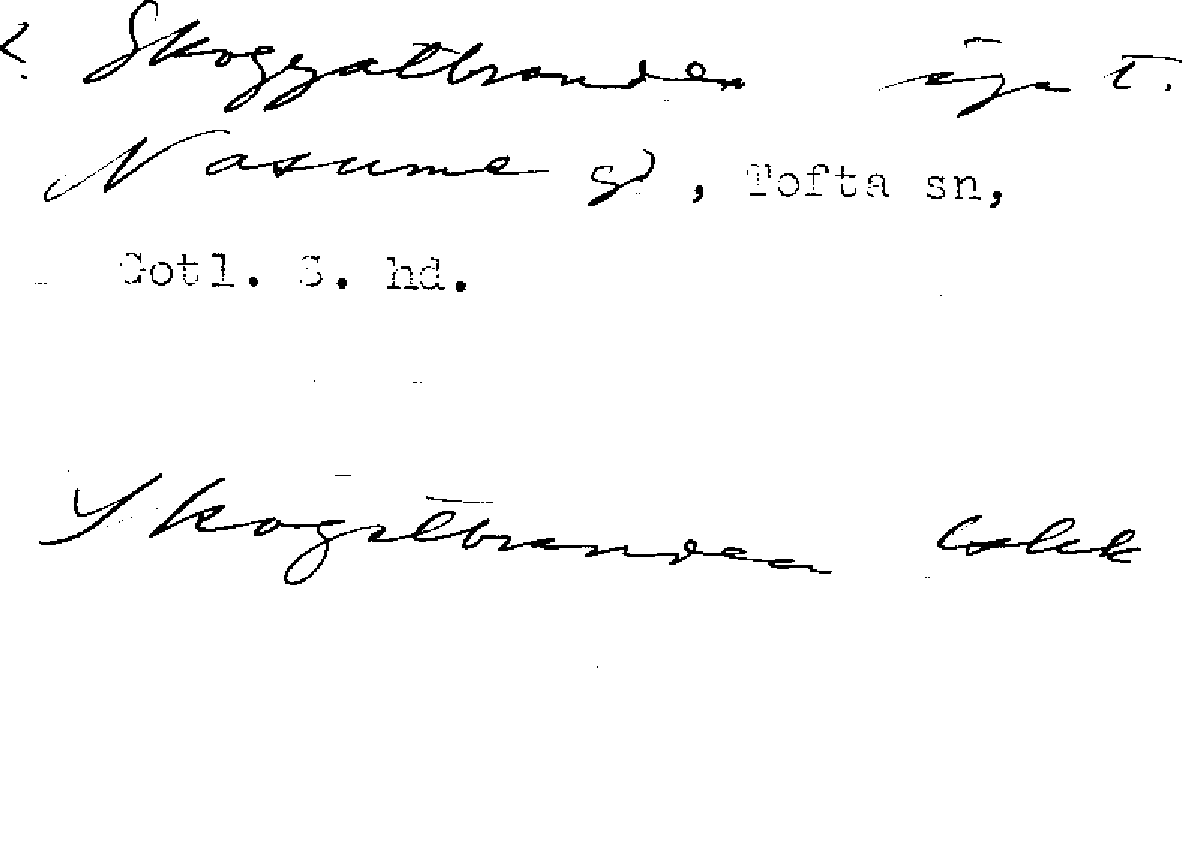 Skoggatbranden äga t.
Nasume gd, Tofta sn,
Gotl. S. hd.
Skogatbranden